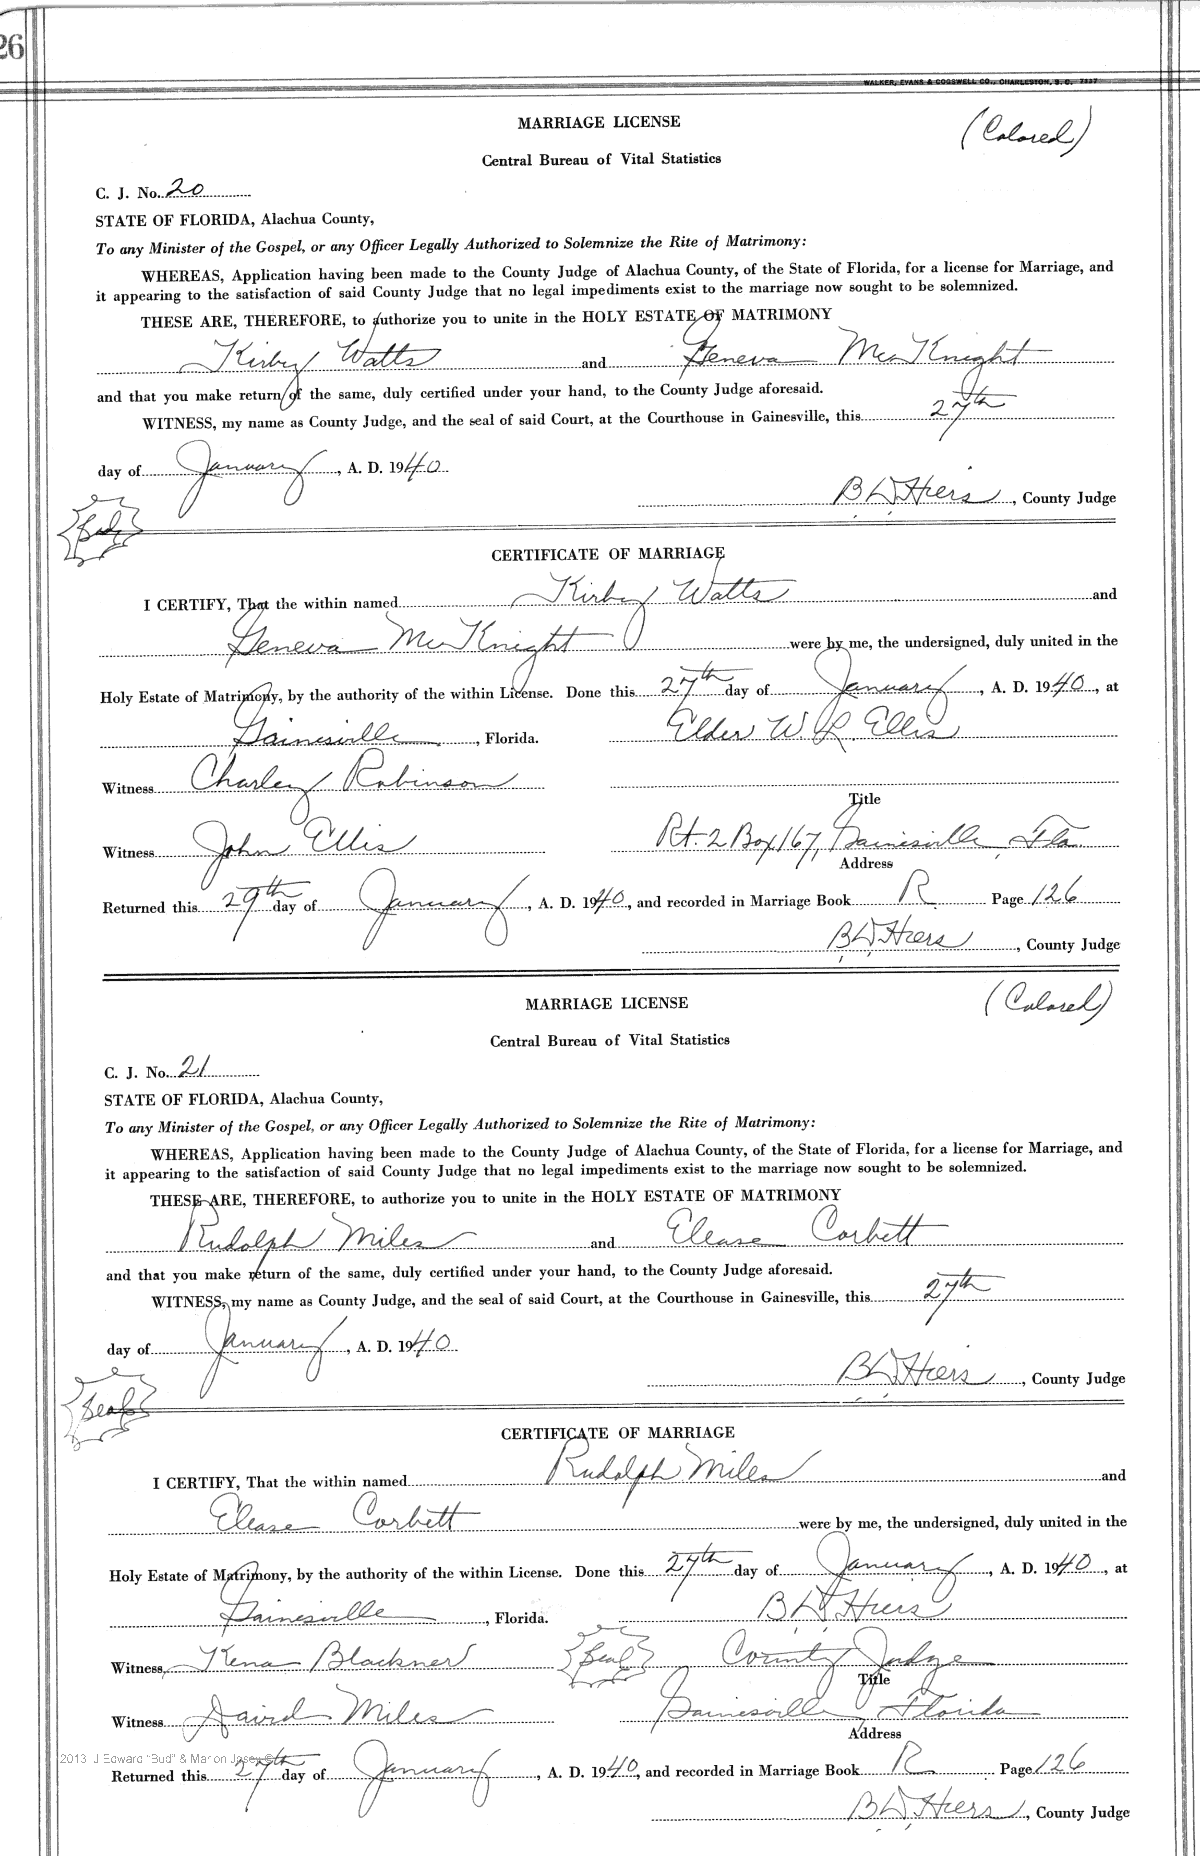 26
WALKER, EVANS & COGSWELL CO., CHARLESTON, S. C. 7337
MARRIAGE LICENSE
(Colored)
Central Bureau of Vital Statistics
C. J. No. 20
STATE OF FLORIDA, Alachua County,
To any Minister of the Gospel, or any Officer Legally Authorized to Solemnize the Rite of Matrimony:
WHEREAS, Application having been made to the County Judge of Alachua County, of the State of Florida, for a license for Marriage, and
it appearing to the satisfaction of said County Judge that no legal impediments exist to the marriage now sought to be solemnized.
THESE ARE, THEREFORE, to authorize you to unite in the HOLY ESTATE OF MATRIMONY
Kirby Watts and Geneva McKnight
and that you make return of the same, duly certified under your hand, to the County Judge aforesaid.
WITNESS, my name as County Judge, and the seal of said Court, at the Courthouse in Gainesville, this 27th
day of January, A. D. 1940
B D Hiers, County Judge
Seal
CERTIFICATE OF MARRIAGE
I CERTIFY, That the within named Kirby Watts and
Geneva McKnight were by me, the undersigned, duly united in the
Holy Estate of Matrimony, by the authority of the within License. Done this 27th day of January, A. D. 1940, at
Gainesville, Florida. Elder W. L. Ellis
Witness Charley Robinson
Title
Witness John Ellis Rt. 2 Box 167, Gainesville, Fla.
Address
Returned this 29th day of January, A. D. 1940, and recorded in Marriage Book R Page 126
B D Hiers, County Judge
MARRIAGE LICENSE
(Colored)
Central Bureau of Vital Statistics
C. J. No. 21
STATE OF FLORIDA, Alachua County,
To any Minister of the Gospel, or any Officer Legally Authorized to Solemnize the Rite of Matrimony:
WHEREAS, Application having been made to the County Judge of Alachua County, of the State of Florida, for a license for Marriage, and
it appearing to the satisfaction of said County Judge that no legal impediments exist to the marriage now sought to be solemnized.
THESE ARE, THEREFORE, to authorize you to unite in the HOLY ESTATE OF MATRIMONY
Rudolph Miles and Elease Corbett
and that you make return of the same, duly certified under your hand, to the County Judge aforesaid.
WITNESS, my name as County Judge, and the seal of said Court, at the Courthouse in Gainesville, this 27th
day of January, A. D. 1940
B D Hiers, County Judge
Seal
CERTIFICATE OF MARRIAGE
I CERTIFY, That the within named Rudolph Miles and
Elease Corbett were by me, the undersigned, duly united in the
Holy Estate of Matrimony, by the authority of the within License. Done this 27th day of January, A. D. 1940, at
Gainesville, Florida. B D Hiers
Witness Kena Blackner Seal County Judge
Title
Witness David Miles Gainesville Florida
Address
2013 J Edward "Bud" & Marion Josey ©
Returned this 27th day of January, A. D. 1940, and recorded in Marriage Book R Page 126
B D Hiers, County Judge